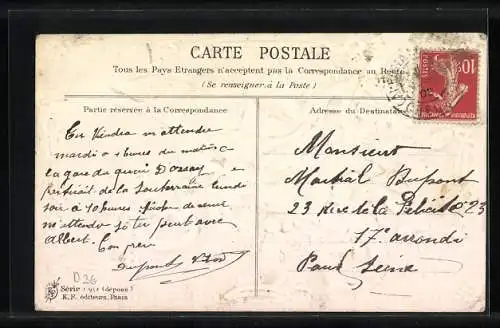 CARTE POSTALE
Tous les Pays Etrangers n'acceptent pas la Correspondance au Recto
(Se renseigner à la Poste)
Partie réservée à la Correspondance
Adresse du Destinataire
Tu viendra m'attendre
mardi a 4 heures du matin a
la gare du quai Dorsay en
partirait de la Souterraine lundi
soir a 10 heures
m'attendre si tu peut avec
Albert. Ton père
Dupont
Monsieur
Martial Dupont
23 Rue de la Félicité 23
17e arrondi
Paris Seine
D 36
Série (déposé)
K. F. éditeurs, Paris
10c